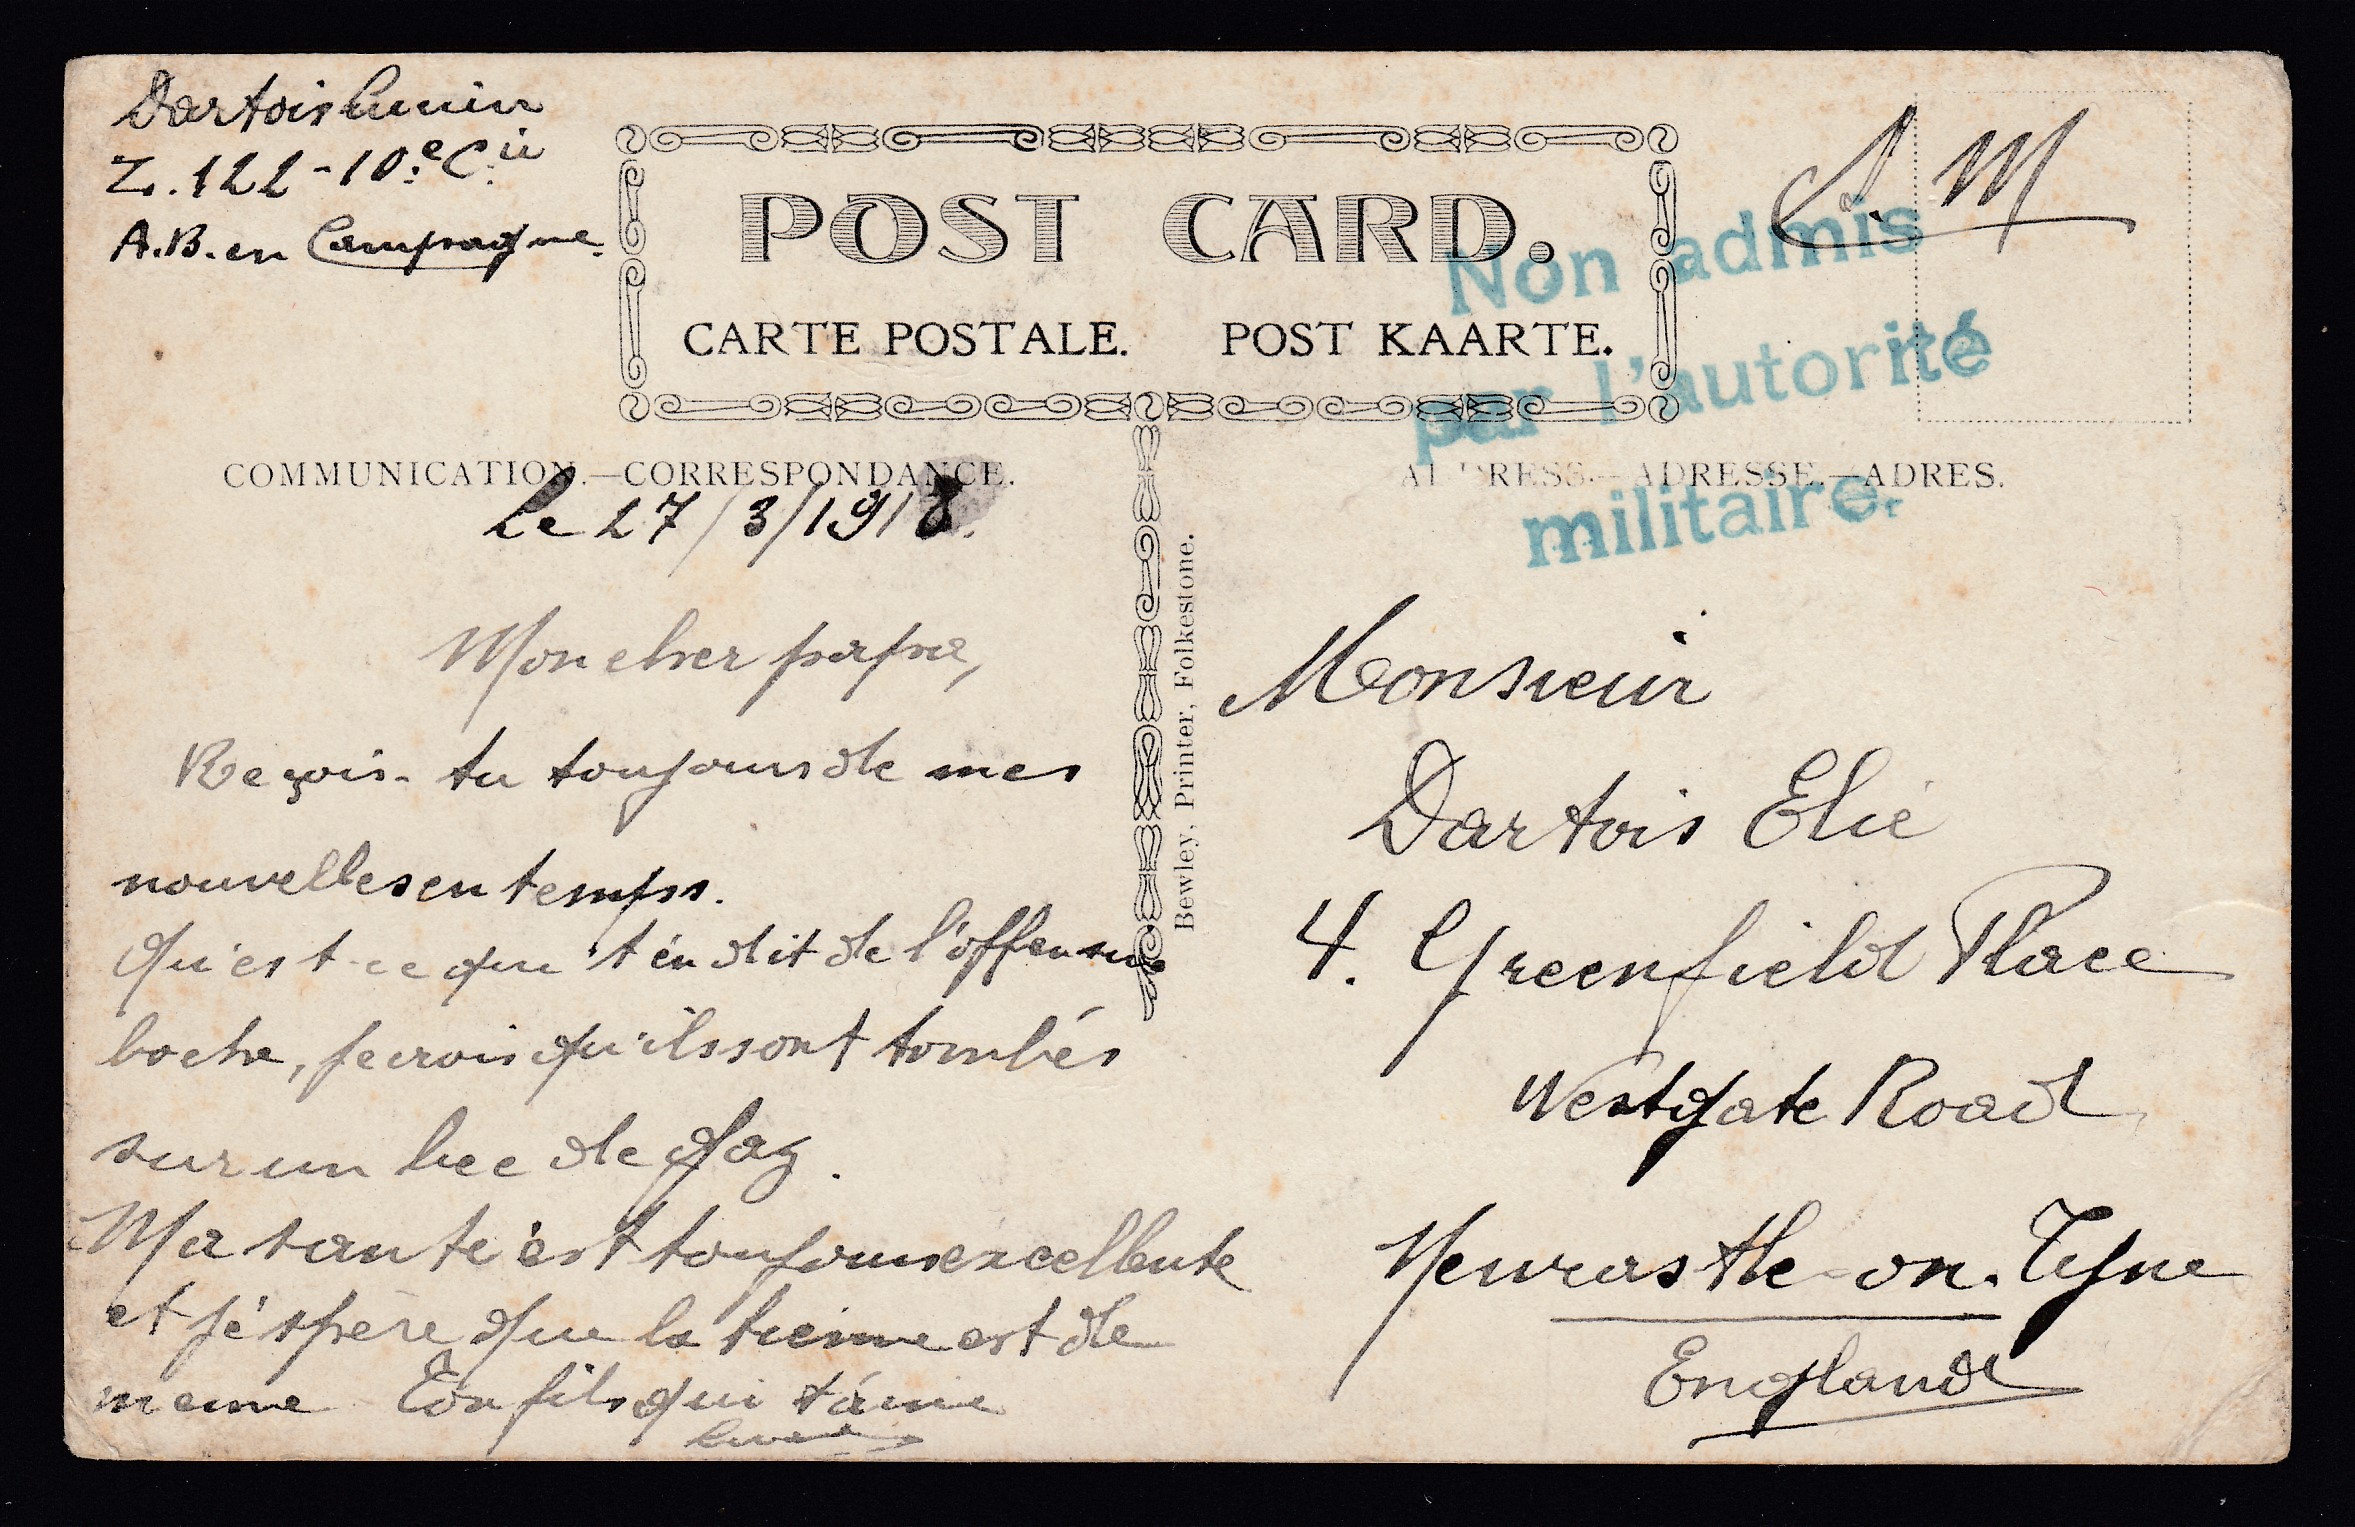 Dartois
Z. 122 - 10e Cie
A.B. en Campagne.
S M
POST CARD.
CARTE POSTALE. POST KAARTE.
Non admis
par l'autorité
militaire.
COMMUNICATION.—CORRESPONDANCE.
ADDRESS.—ADRESSE.—ADRES.
Le 27/3/1918.
Mon cher papa,
Reçois-tu toujours de mes
nouvelles en temps.
Qu'est-ce que t'en dit de l'offensive
boche, je crois qu'ils sont tombés
sur un bec de gaz.
Ma santé est toujours excellente
et j'éspère que la tienne est de
meme Ton fils qui t'aime
Bewley, Printer, Folkestone.
Monsieur
Dartois Elie
4. Greenfield Place
Westgate Road
Newcastle-on-Tyne
England